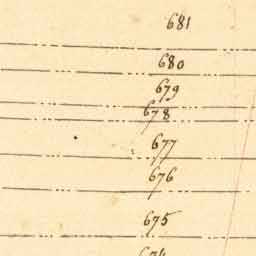 681
680
679
678
677
676
675
674